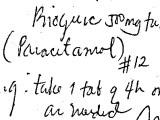 500mg ta
(Paracetamol)
#12
take 1 tab q 4h
as needed